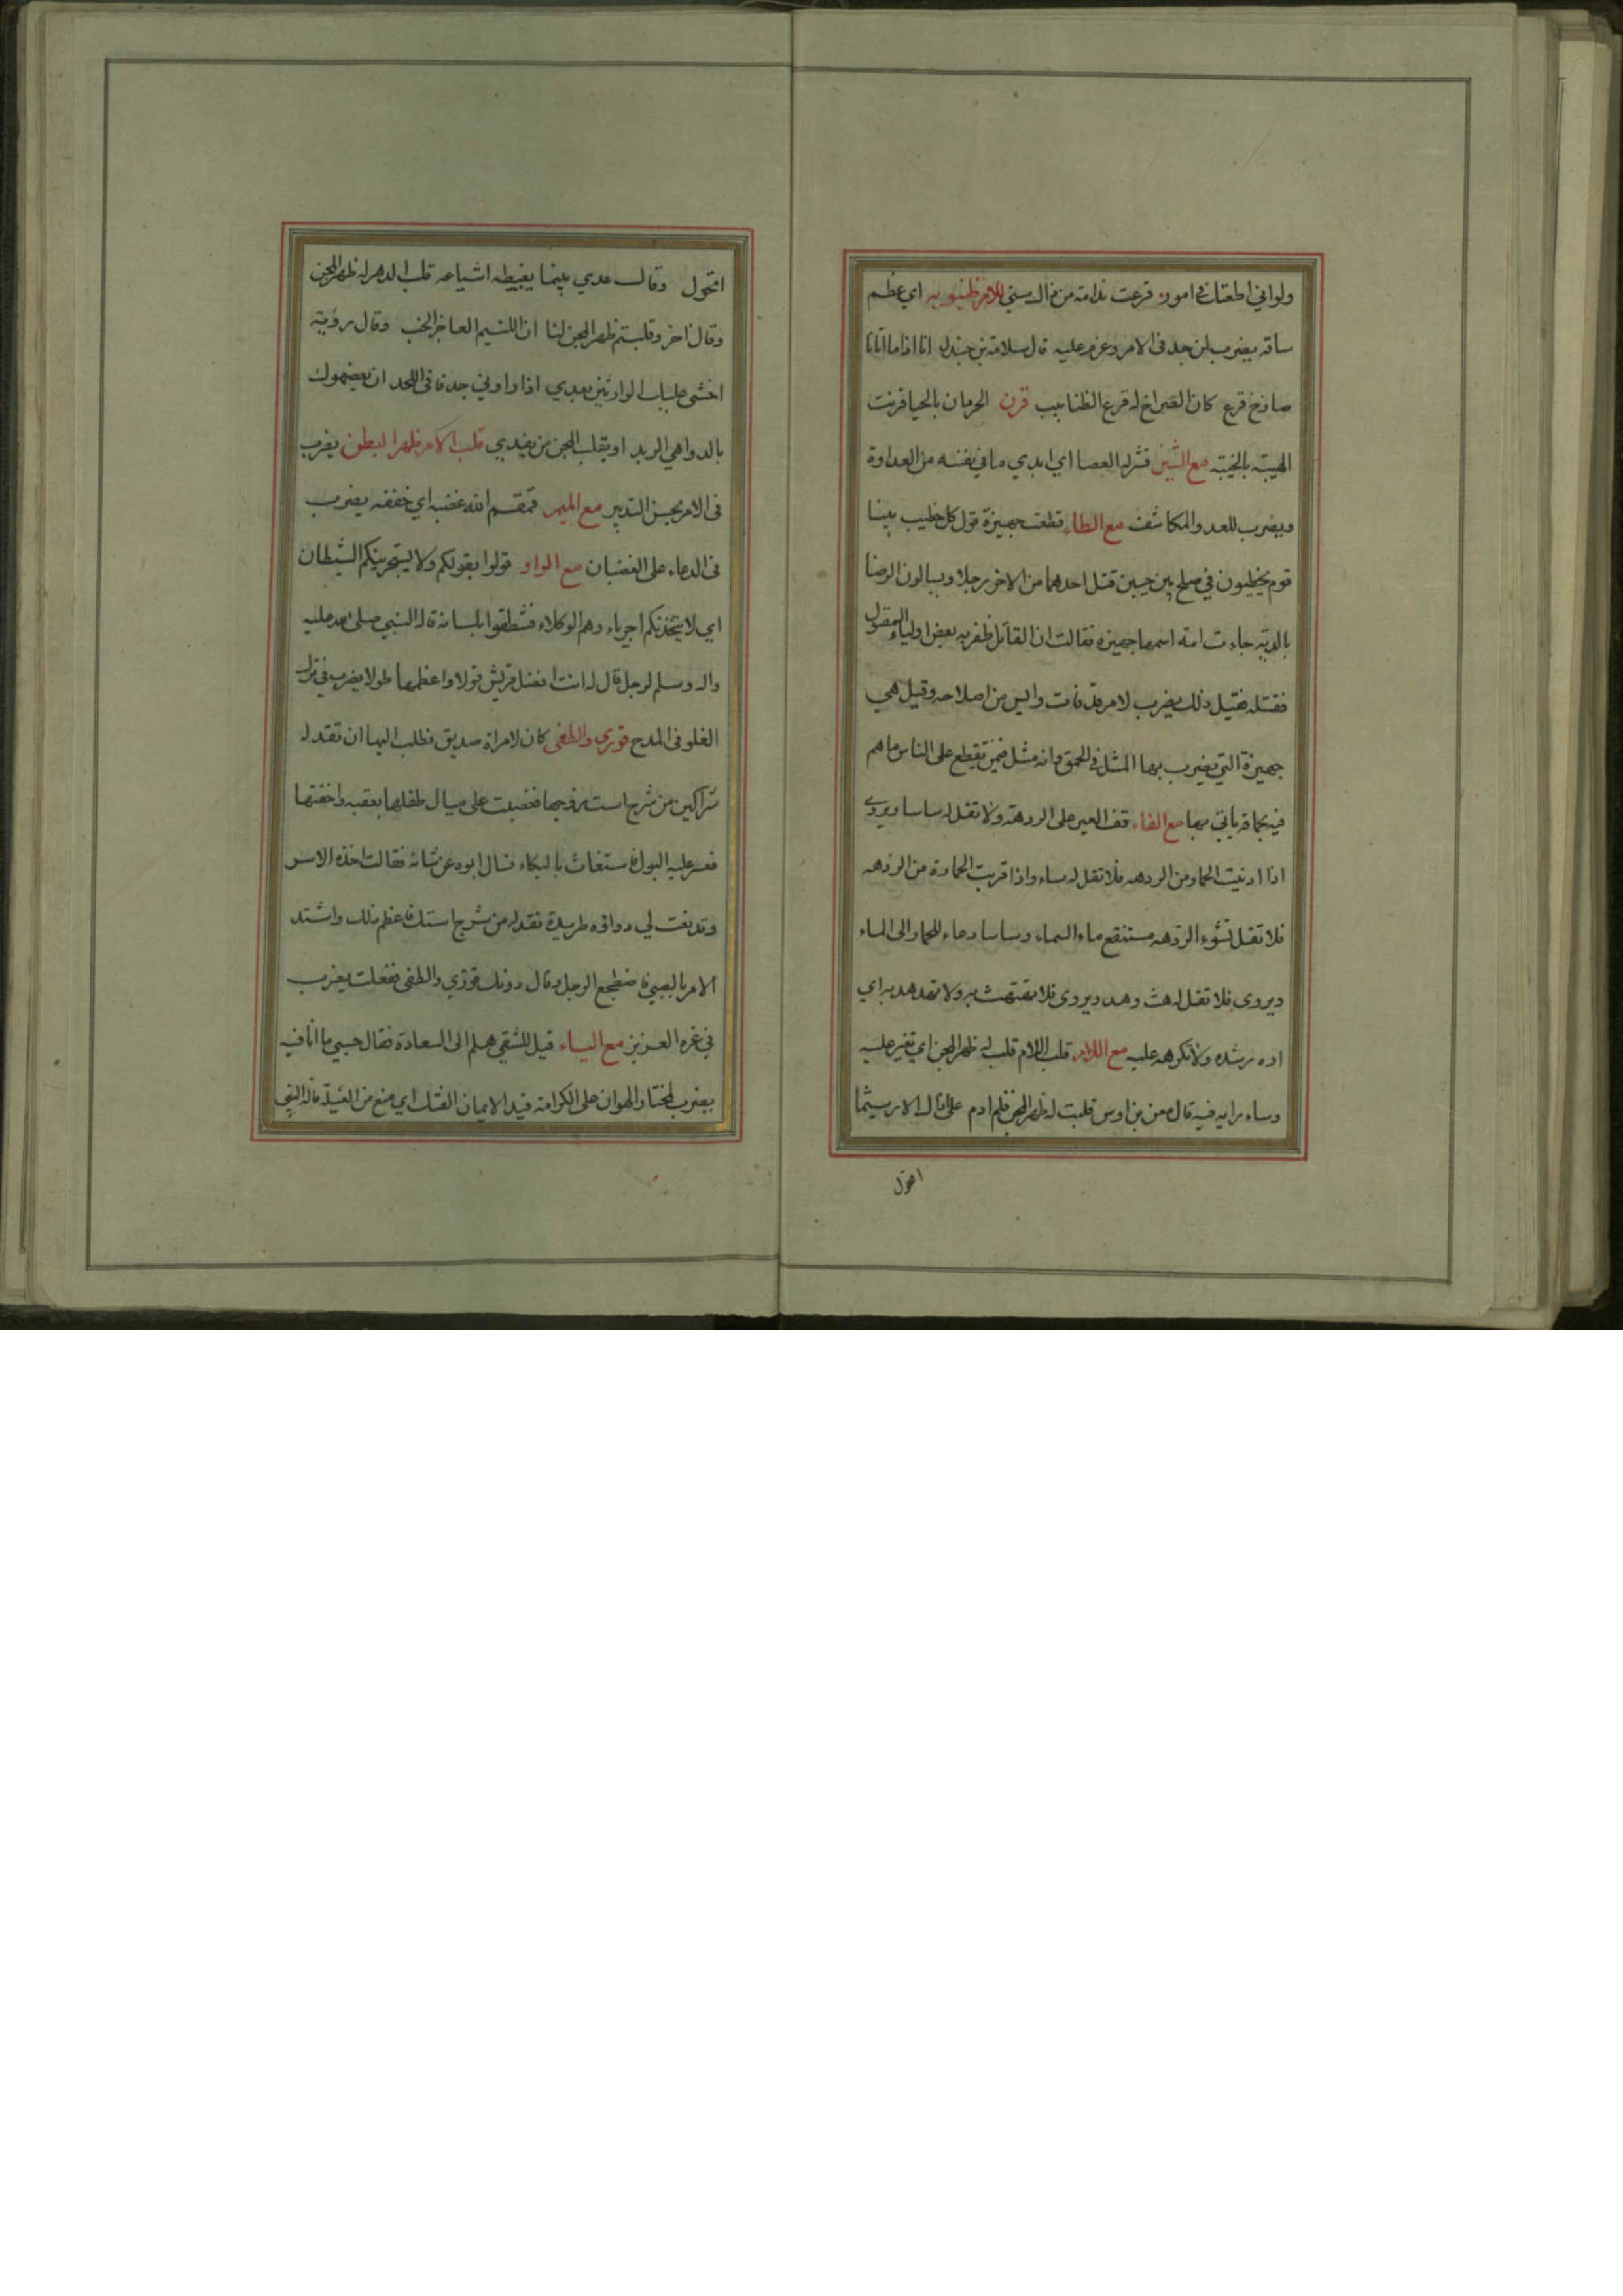 ولواني اطعتك في امور قرعت ندامة من ذاك سني للامر ظنبوبه اي عظم
ساقه يضرب لمن جد في الامر وعزم عليه قال سلامة بن جندل انا اذا ما اتانا
صارخ فزع كان الصراخ له قرع الظنابيب قرن الحرمان بالحيا قرنت
الهيبة بالخيبة مع الشين قشر له العصا اي ابدي ما في نفسه من العداوة
ويضرب للعدو المكاشف مع الطاء قطعت جهيزة قول كل خطيب بينا
قوم يخطبون في صلح بين حيين قتل احدهما من الاخر رجلا ويسالون الرضا
بالدية جاءت امة اسمها جهيزه فقالت ان القاتل ظفر به بعض اولياء المقتول
فقتله فقيل ذلك يضرب لامر قد فات وايس من اصلاحه وقيل هي
جهيزة التي يضرب بها المثل في الحمق وانه مثل فيمن يقطع على الناس ما هم
فيه بحماقة ياتي بها مع الفاء قف العير على الردهة ولا تقل له ساسا ويروي
اذا ادنيت الحمار من الردهه فلا تقل له ساء واذا قربت الحمارة من الردهه
فلا تقل تشوء الردهه مستنقع ماء السماء وساسا دعاء للحمار الى الماء
ويروى فلا تقل له هث وهد ويروى فلا تهثهث به ولا تهدهد به اي
اده رشده ولا تكرهه عليه مع اللام قلب اللام قلب له ظهر المجن اي تغير عليه
وساء رايه فيه قال معن بن اوس قلبت له ظهر المجن فلم ادم على ذاك الا ريثما
اتحول
اتحول وقال عدي بينما يغبطه اشياعه قلب الدهر له ظهر المجن
وقال اخر وقلبتم ظهر المجن لنا ان اللئيم العاجز الخب وقال رؤبة
اخشى عليك الوارثين بعدي اذا واروني جدفا في اللحد ان يعضهوك
بالدواهي الربد او يقلب المجن من يفدي قلب الامر ظهرا لبطن يضرب
في الامر بحسن التدبير مع الميم قمقم الله عضبه اي خففه يضرب
في الدعاء على الغضبان مع الواو قولوا بقولكم ولا يستجرينكم الشيطان
اي لا يتخذنكم اجرياء وهم الوكلاء فتنطقوا بلسانه قاله النبي صلى الله عليه
واله وسلم لرجل قال له انت افضل قريش قولا واعظمها طولا يضرب في ترك
الغلو في المدح قوري والطفي كان لامراة صديق فطلب اليها ان تقد له
شراكين من شرج است زوجها فعصبت على مبال طفلها بعقبه واخفتها
فعسر عليه البول فاستغاث بالبكاء فسال ابوه عن شانه فقالت اخذه الاسر
وقد نعت لي دواؤه طريدة تقد له من شرج استك فاعظم ذلك واشتد
الامر بالصبي فاضطجع الرجل وقال دونك قوري والطفي ففعلت يضرب
في غره العزيز مع الياء قيل للشقي هلم الى السعادة فقال حسبي ما انا فيه
يضرب لمختار الهوان على الكرامة قيد الايمان الفتك اي منع من الغيلة قاله النبي